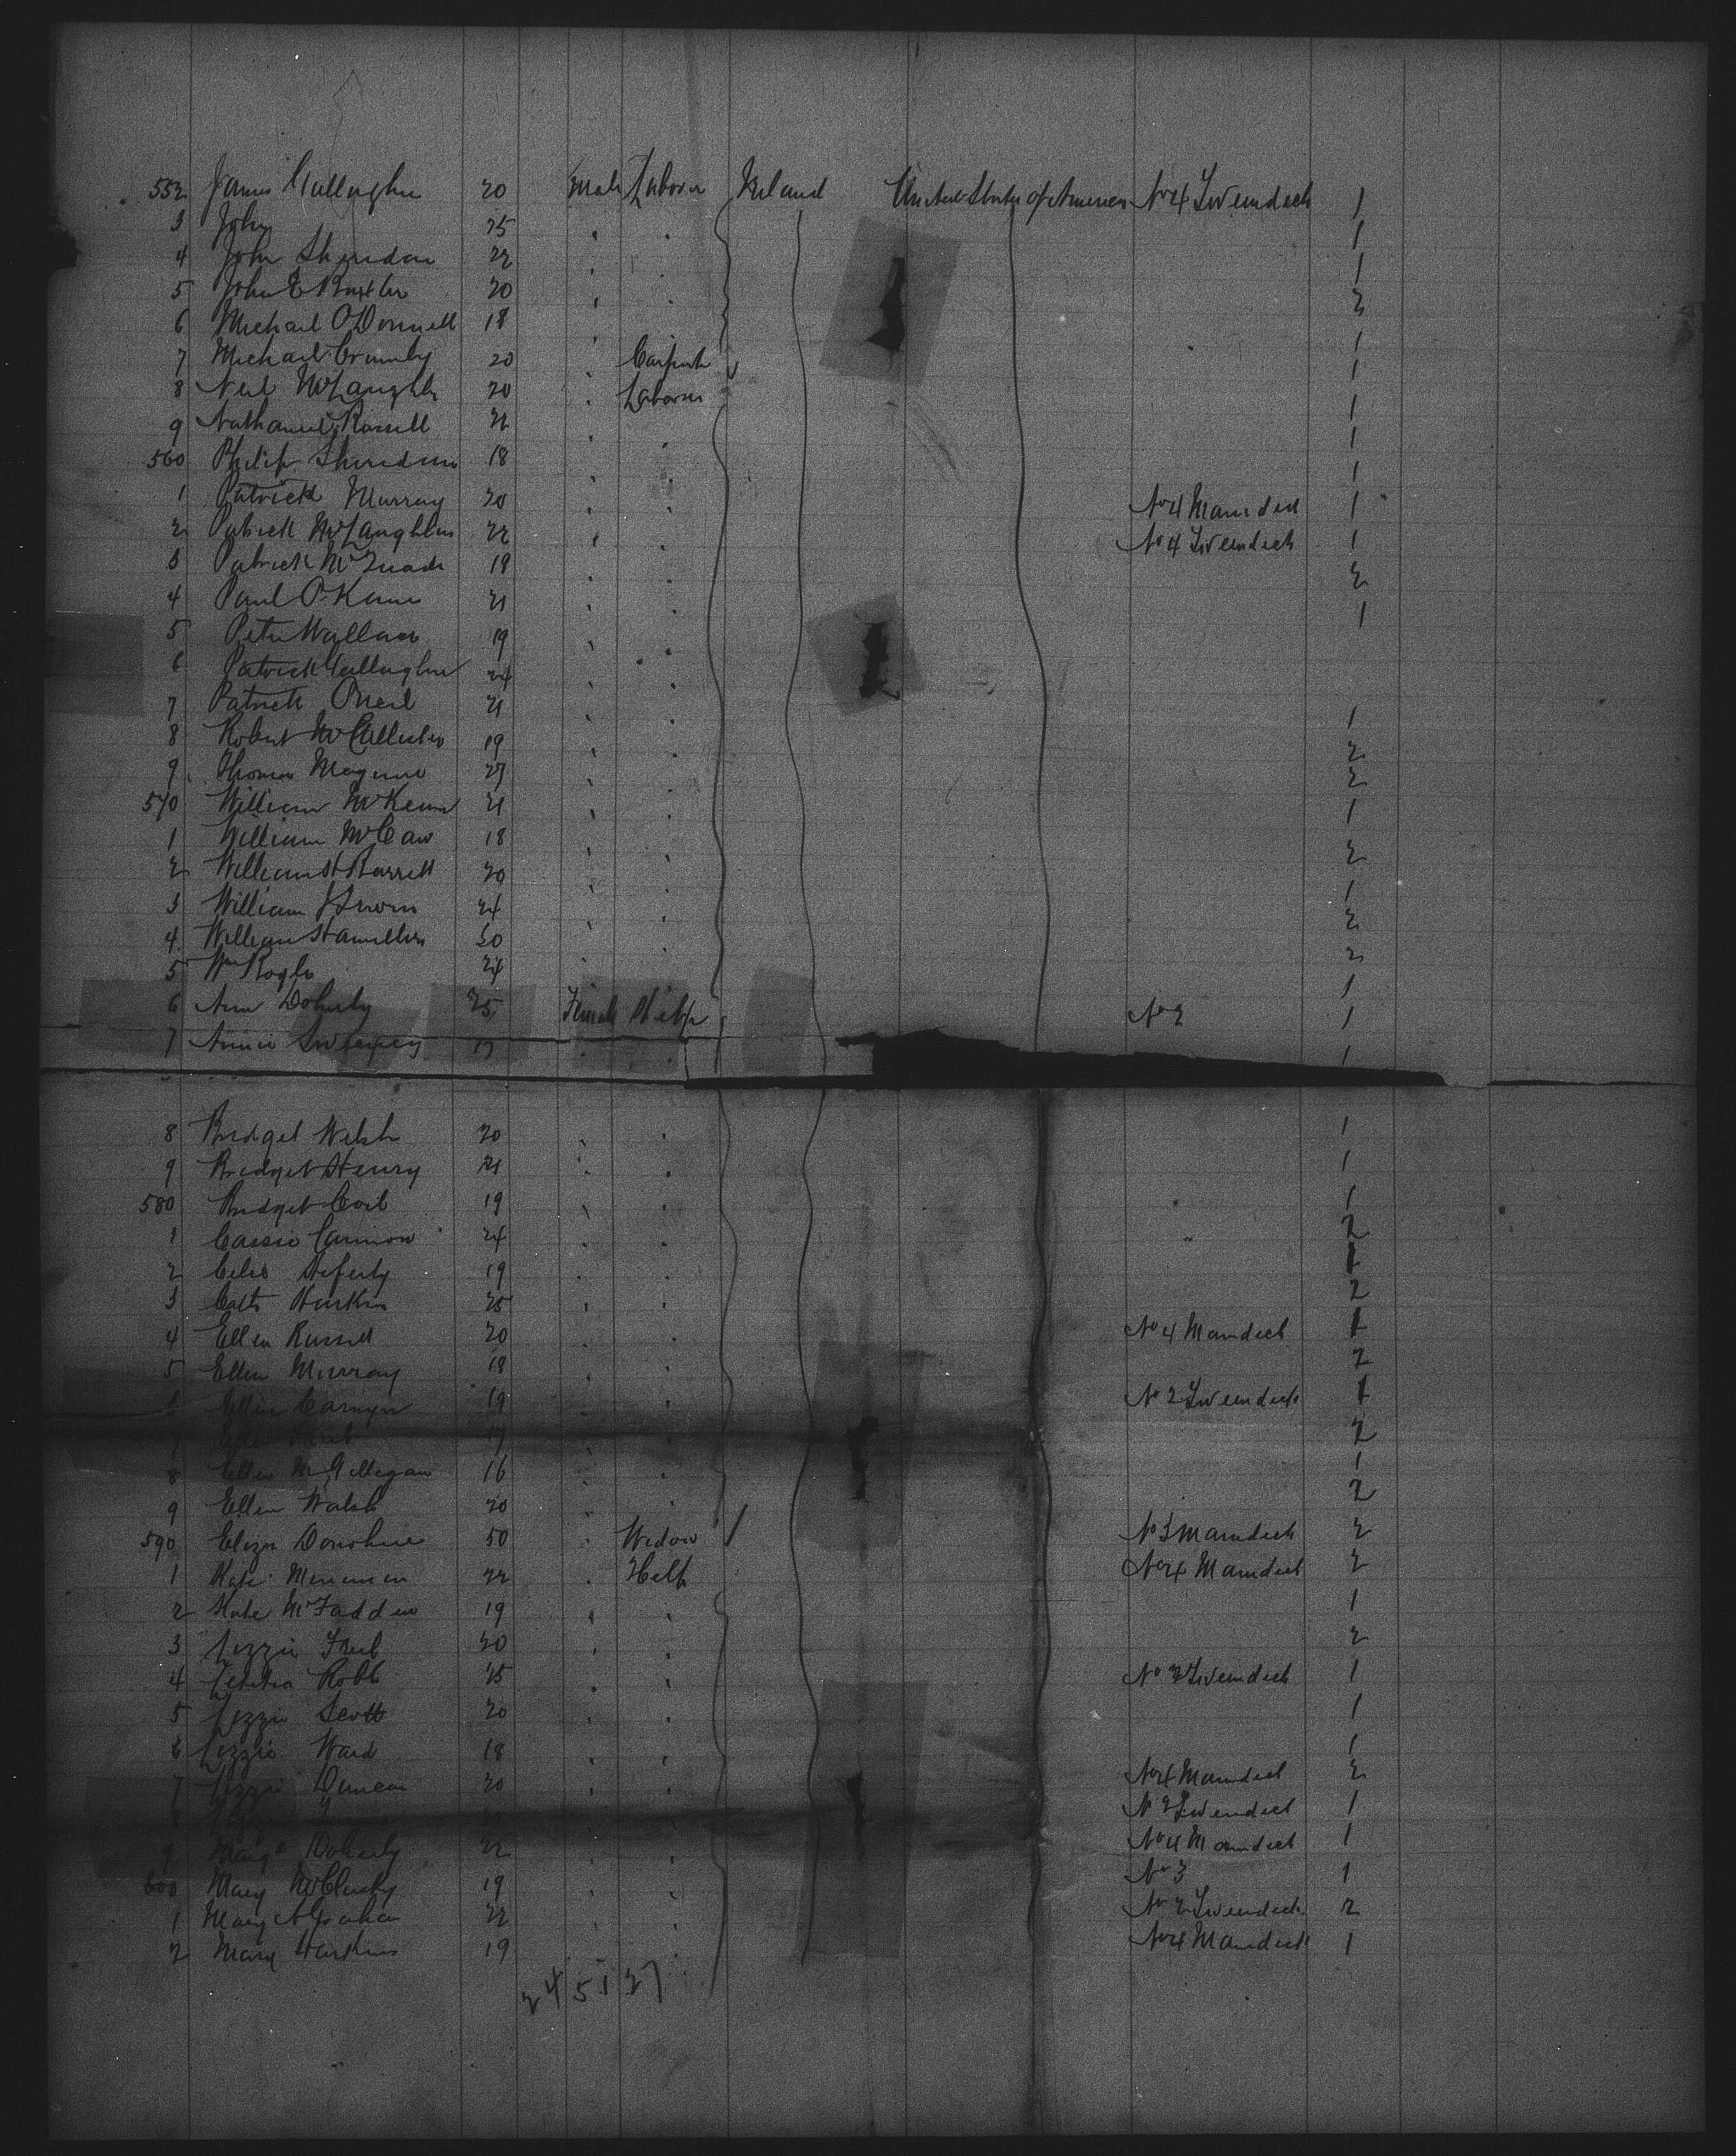 552 James Gallagher 20 Male Laborer Ireland United States of America No 4 Tweendeck 1
3 John 25 " " 1
4 John Sheridan 22 " " 1
5 John E Baxter 20 " " 2
6 Michael O'Donnell 18 " 1
7 Michael Crumley 20 " Carpentr 1
8 Neil McLaughlin 20 " Laborer 1
9 Nathaniel Russell 21 " " 1
560 Philip Sheridan 18 " " 1
1 Patrick Murray 20 " " No 4 Maindeck 1
2 Patrick McLaughlin 22 " " No 4 Tweendeck 1
3 Patrick McQuade 19 " " 2
4 Paul O'Kane 21 " " 1
5 Peter Wallace 19 " "
6 Patrick Gallagher 24 " "
7 Patrick ONeil 21 " " 1
8 Robert McCallister 19 " " 2
9 Thomas Maguire 27 " " 2
570 William McKenna 21 " " 1
1 William McCaw 18 " " 2
2 William H Barrett 20 " " 1
3 William 24 " " 2
4 William Hamilton 50 " " 2
5 Wm 24 1
6 Ann Doherty 25 Female Help No 2 1
7 Annie Sweeney 17 " " 1
8 Bridget Welsh 20 " " 1
9 Bridget Henry 21 " " 1
580 Bridget Coil 19 " " 1
1 Cassie Cannon 24 " " " 2
2 Celia Heferty 19 " " 1
3 Cath Harkin 25 " " 2
4 Ellen Russell 20 " " No 4 Maindeck 1
5 Ellen Murray 18 " " 2
Ellen 19 " " No 2 Tweendeck 1
17 " " 2
8 Ellen McGilligan 16 " " 1
9 Ellen Walsh 20 " " 2
590 Eliza Donohue 50 " Widow No 3 Maindeck 2
1 Kate 22 " Help No 4 Maindeck 2
2 Kate McFadden 19 " " 1
3 Lizzie Friel 20 " " 2
4 Letitia Robb 25 " " No 2 Tweendeck 1
5 Lizzie Scott 20 " " 1
6 Lizzie Ward 18 " " 1
7 Lizzie Duncan 20 " " No 4 Maindeck 2
No 2 Tweendeck 1
9 Margt Doherty 22 " " No 4 Maindeck 1
600 Mary McClusky 19 " " No 3 1
1 Mary A Graham 22 " " No 2 Tweendeck 2
2 Mary Harkins 19 " " No 4 Maindeck 1
24 51 27